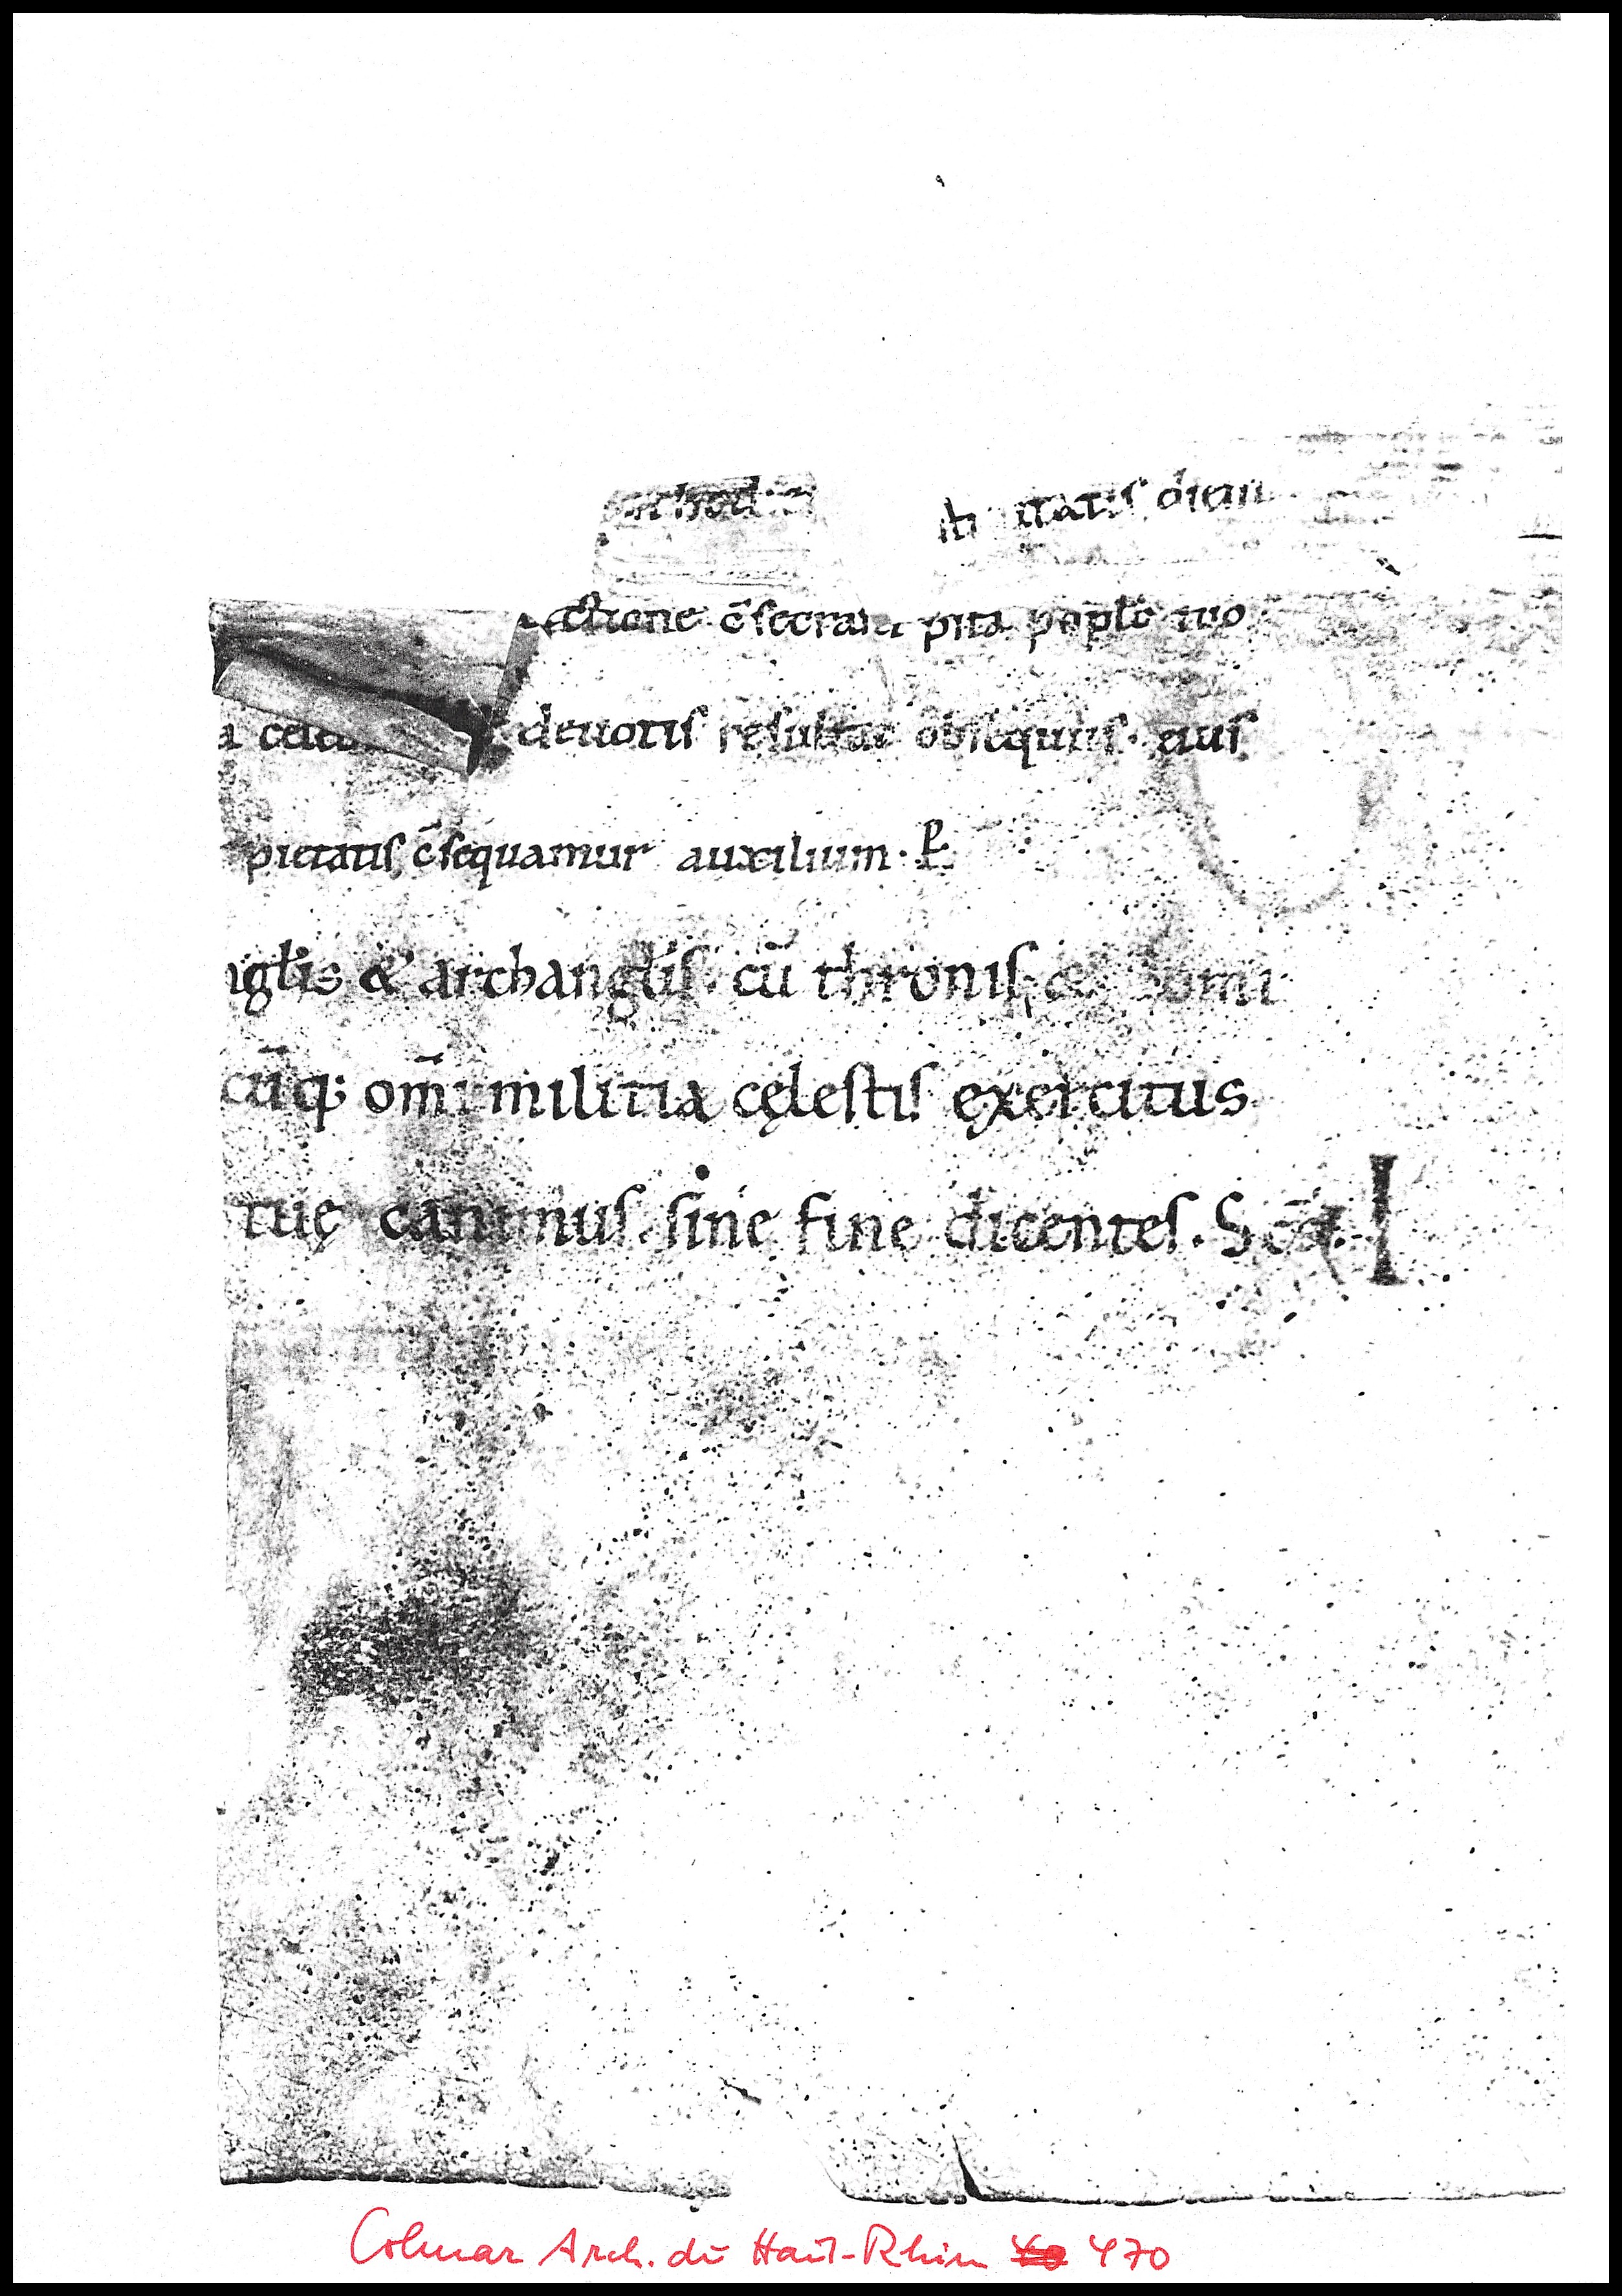 itatis
ctione c̄secrata pita poplo tuo
a cele devotis resultat obsequiis · eius
pietatis c̄sequamur auxilium · P
nglis & archanglis · cū thronis & domi
cūq; om̄i militia cęlestis exercitus
tuę canimus · sine fine dicentes · Scs I
Colmar Arch. du Haut-Rhin 470